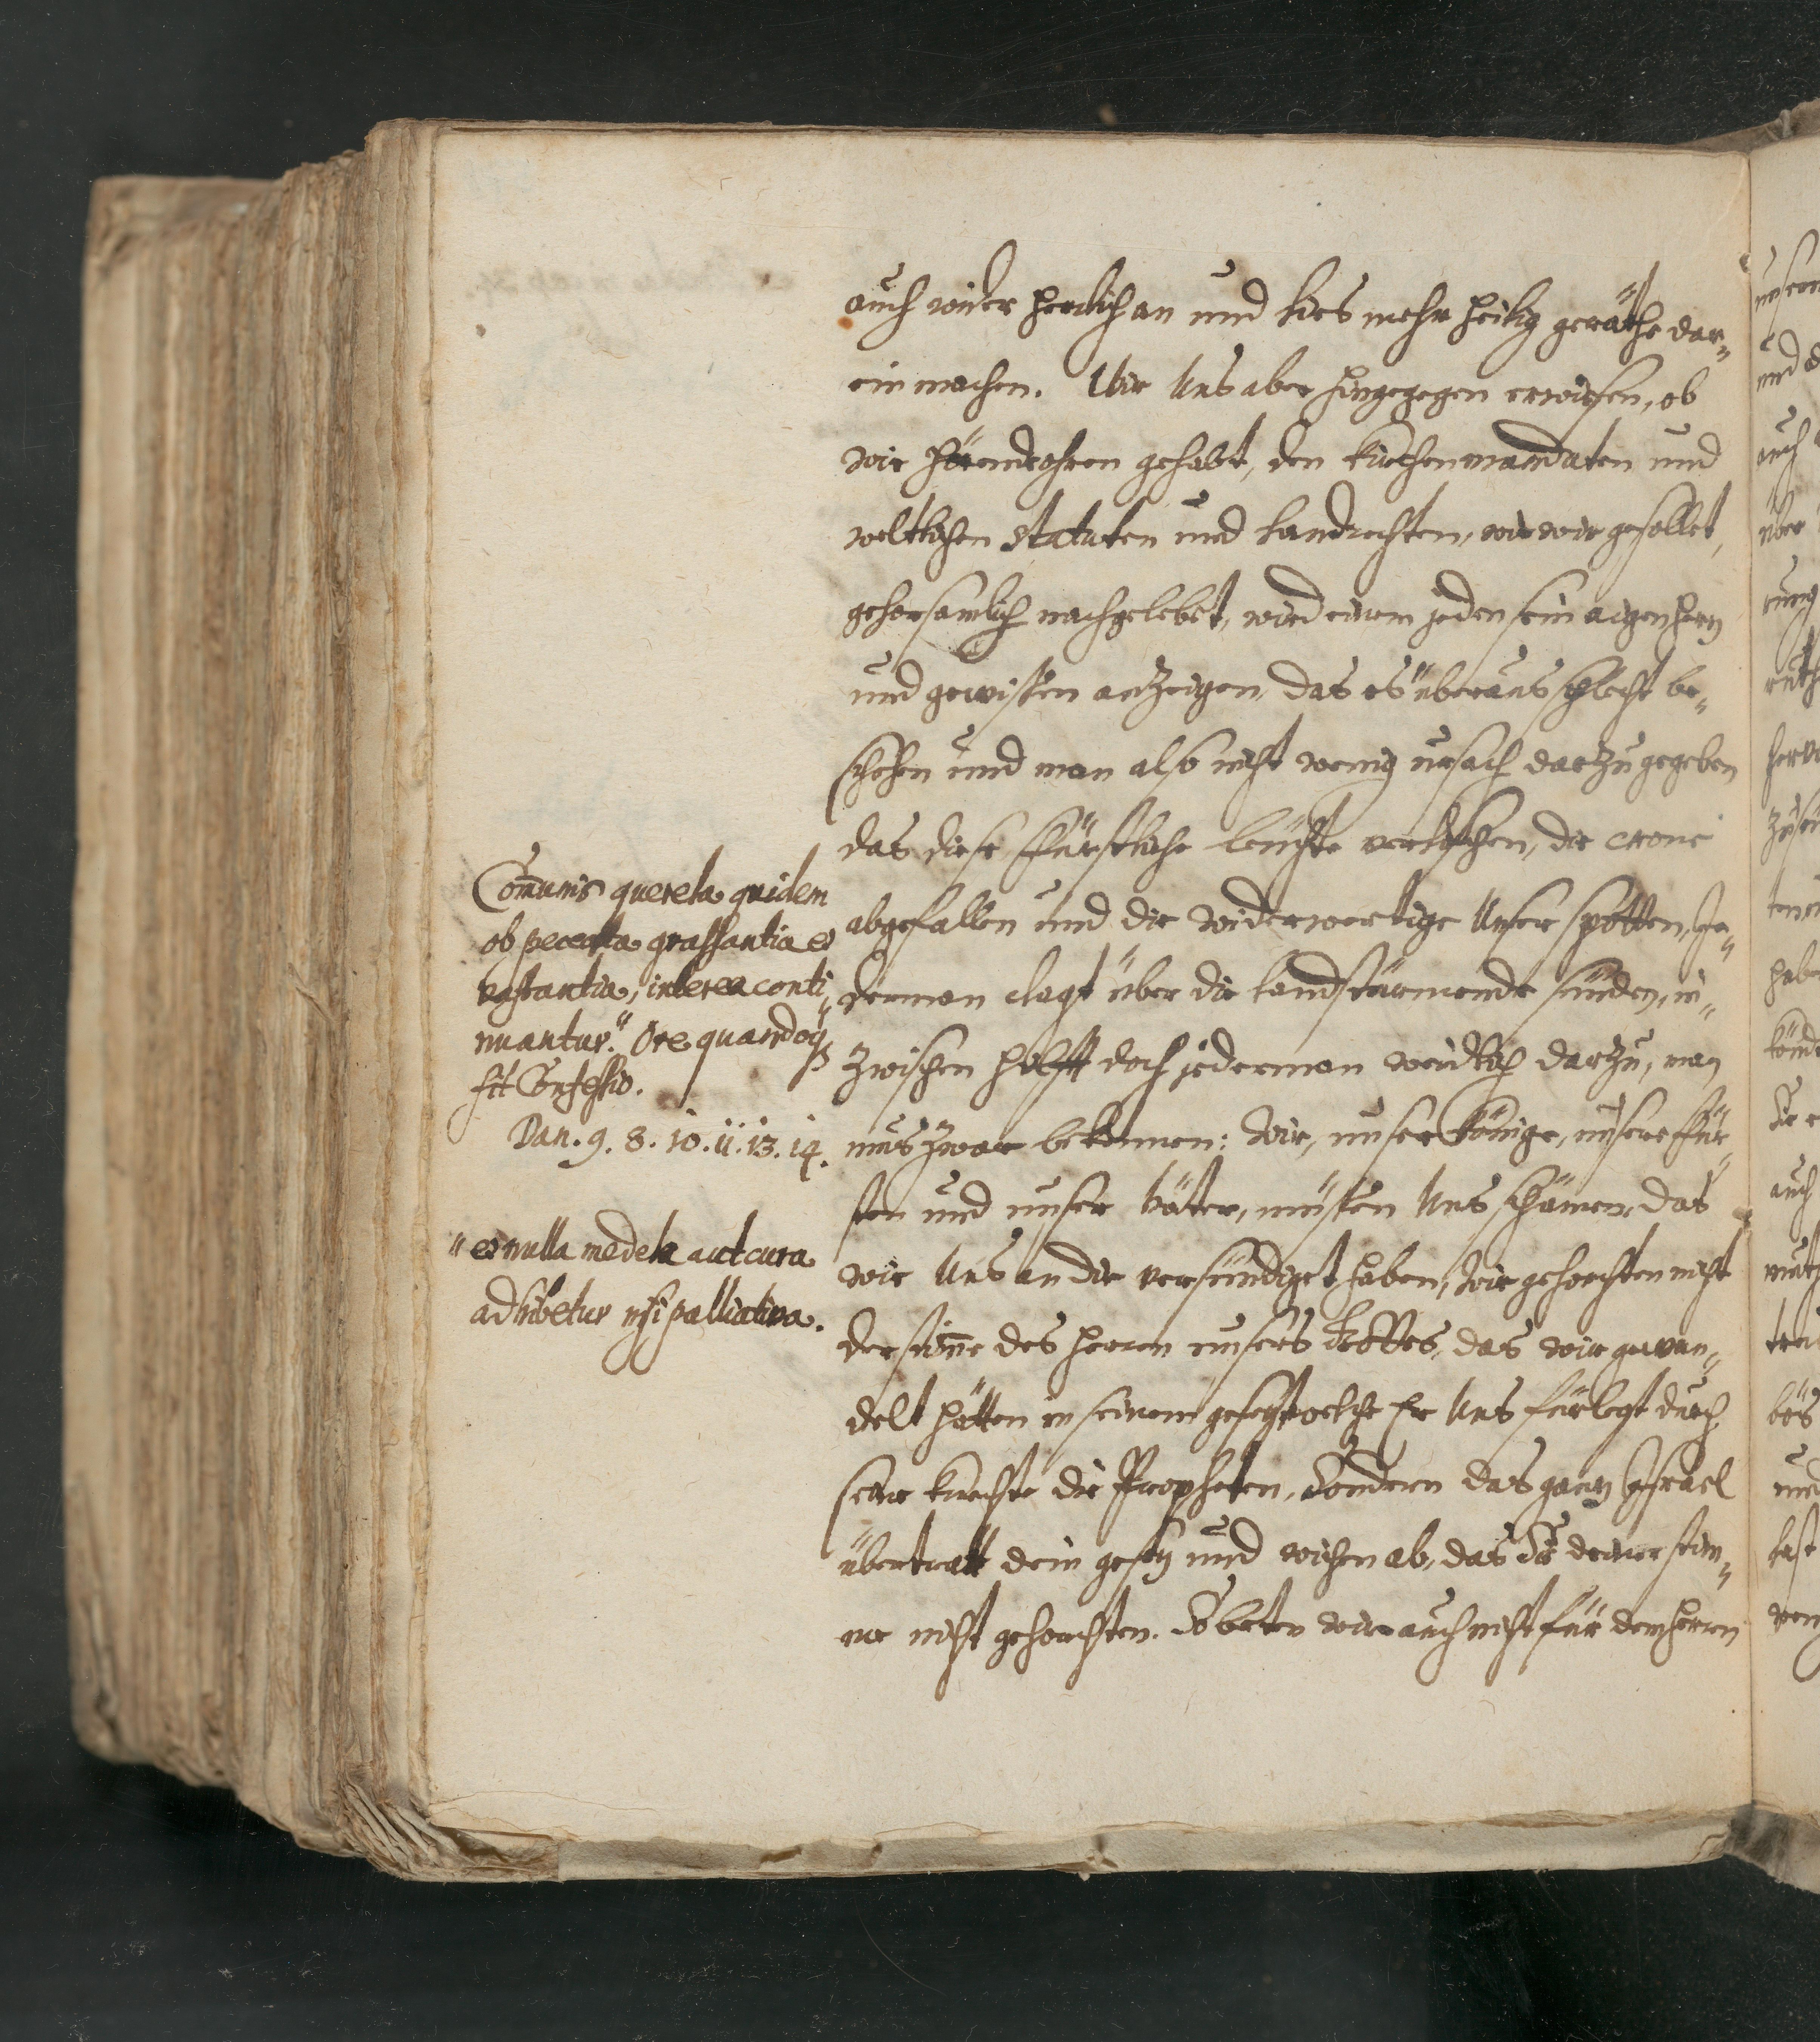 auch wider herlich an und lies mehr heilig geräthe dar„
ein machen. Wie Uns aber hingegegen erwisen, ob
wir hörendohren gehabt, den Kirchenmandaten und
weltlichen statuten und Landrechten, wie wir gesollet,
gehorsamlich nachgelebet, wird einem jeden sein aigen hertz
und gewissen anzeigen, das es überaus schlecht be„
schehen und man also nicht wenig ursach darzu gegeben
das diese Fürstliche leuchte verleschen, die crone
abgefallen und die widerwertige Unser spotten, Je„
derman clagt über die landstürmende sünden, in„
zwischen hilfft doch jederman weidlich darzu, man
mus zwar bekennen: Wir, unser Könige, unsere Für„
sten und unser Väter, müssen Uns schämen, das
wir Uns an dir versündiget haben, Wir gehorchten nicht
der stime des Herren unsers Gottes, das wir gewan„
delt hätten in seinem gesetz welche Er Uns fürlegt durch
seine knechte die Propheten, Sondern das gantz Israel
übertratt dein gesetz und wichen ab, das Sie deiner stim„
me nicht gehorchten. So beten wir auch nicht für dem Herren
Comunis querela quidem
ob peccata grassantia et
vastantia, interea conti„
nuantur." Ore quandoq;
fit Confessio.
Dan. 9. 8. 10. 11. 13. 14.
" et nulla medela aut cura
adhibetur nisi palliativa.